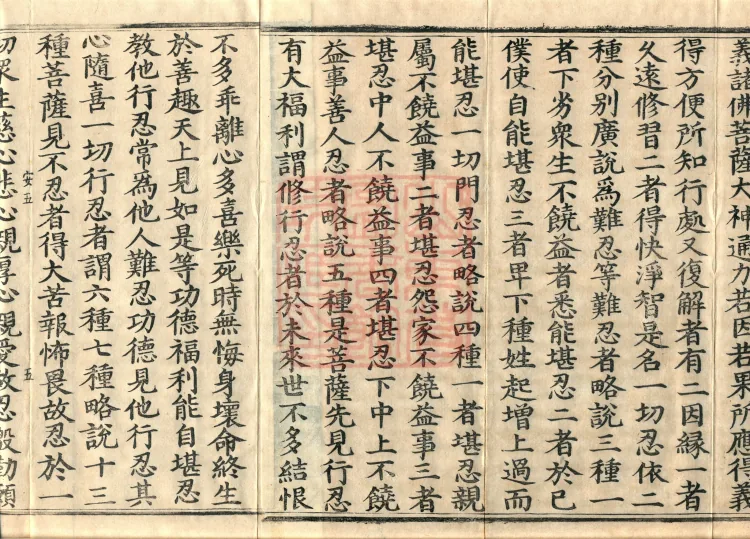 義謂佛菩薩大神通力若因若果所應得義
得方便所知行處又復解者有二因緣一者
久遠修習二者得快淨智是名一切忍依二
種分別廣說爲難忍等難忍者略說三種一
者下劣衆生不饒益者悉能堪忍二者於己
僕使自能堪忍三者卑下種姓起增上過而
能堪忍一切門忍者略說四種一者堪忍親
屬不饒益事二者堪忍怨家不饒益事三者
堪忍中人不饒益事四者堪忍下中上不饒
益事善人忍者略說五種是菩薩先見行忍
有大福利謂修行忍者於未來世不多結恨
不多乖離心多喜樂死時無悔身壞命終生
於善趣天上見如是等功德福利能自堪忍
教他行忍常爲他人難忍功德見他行忍其
心隨喜一切行忍者謂六種七種略說十三
種菩薩見不忍者得大苦報怖畏故忍於一
安五 五
切衆生慈心悲心親厚心親愛故忍慇懃願